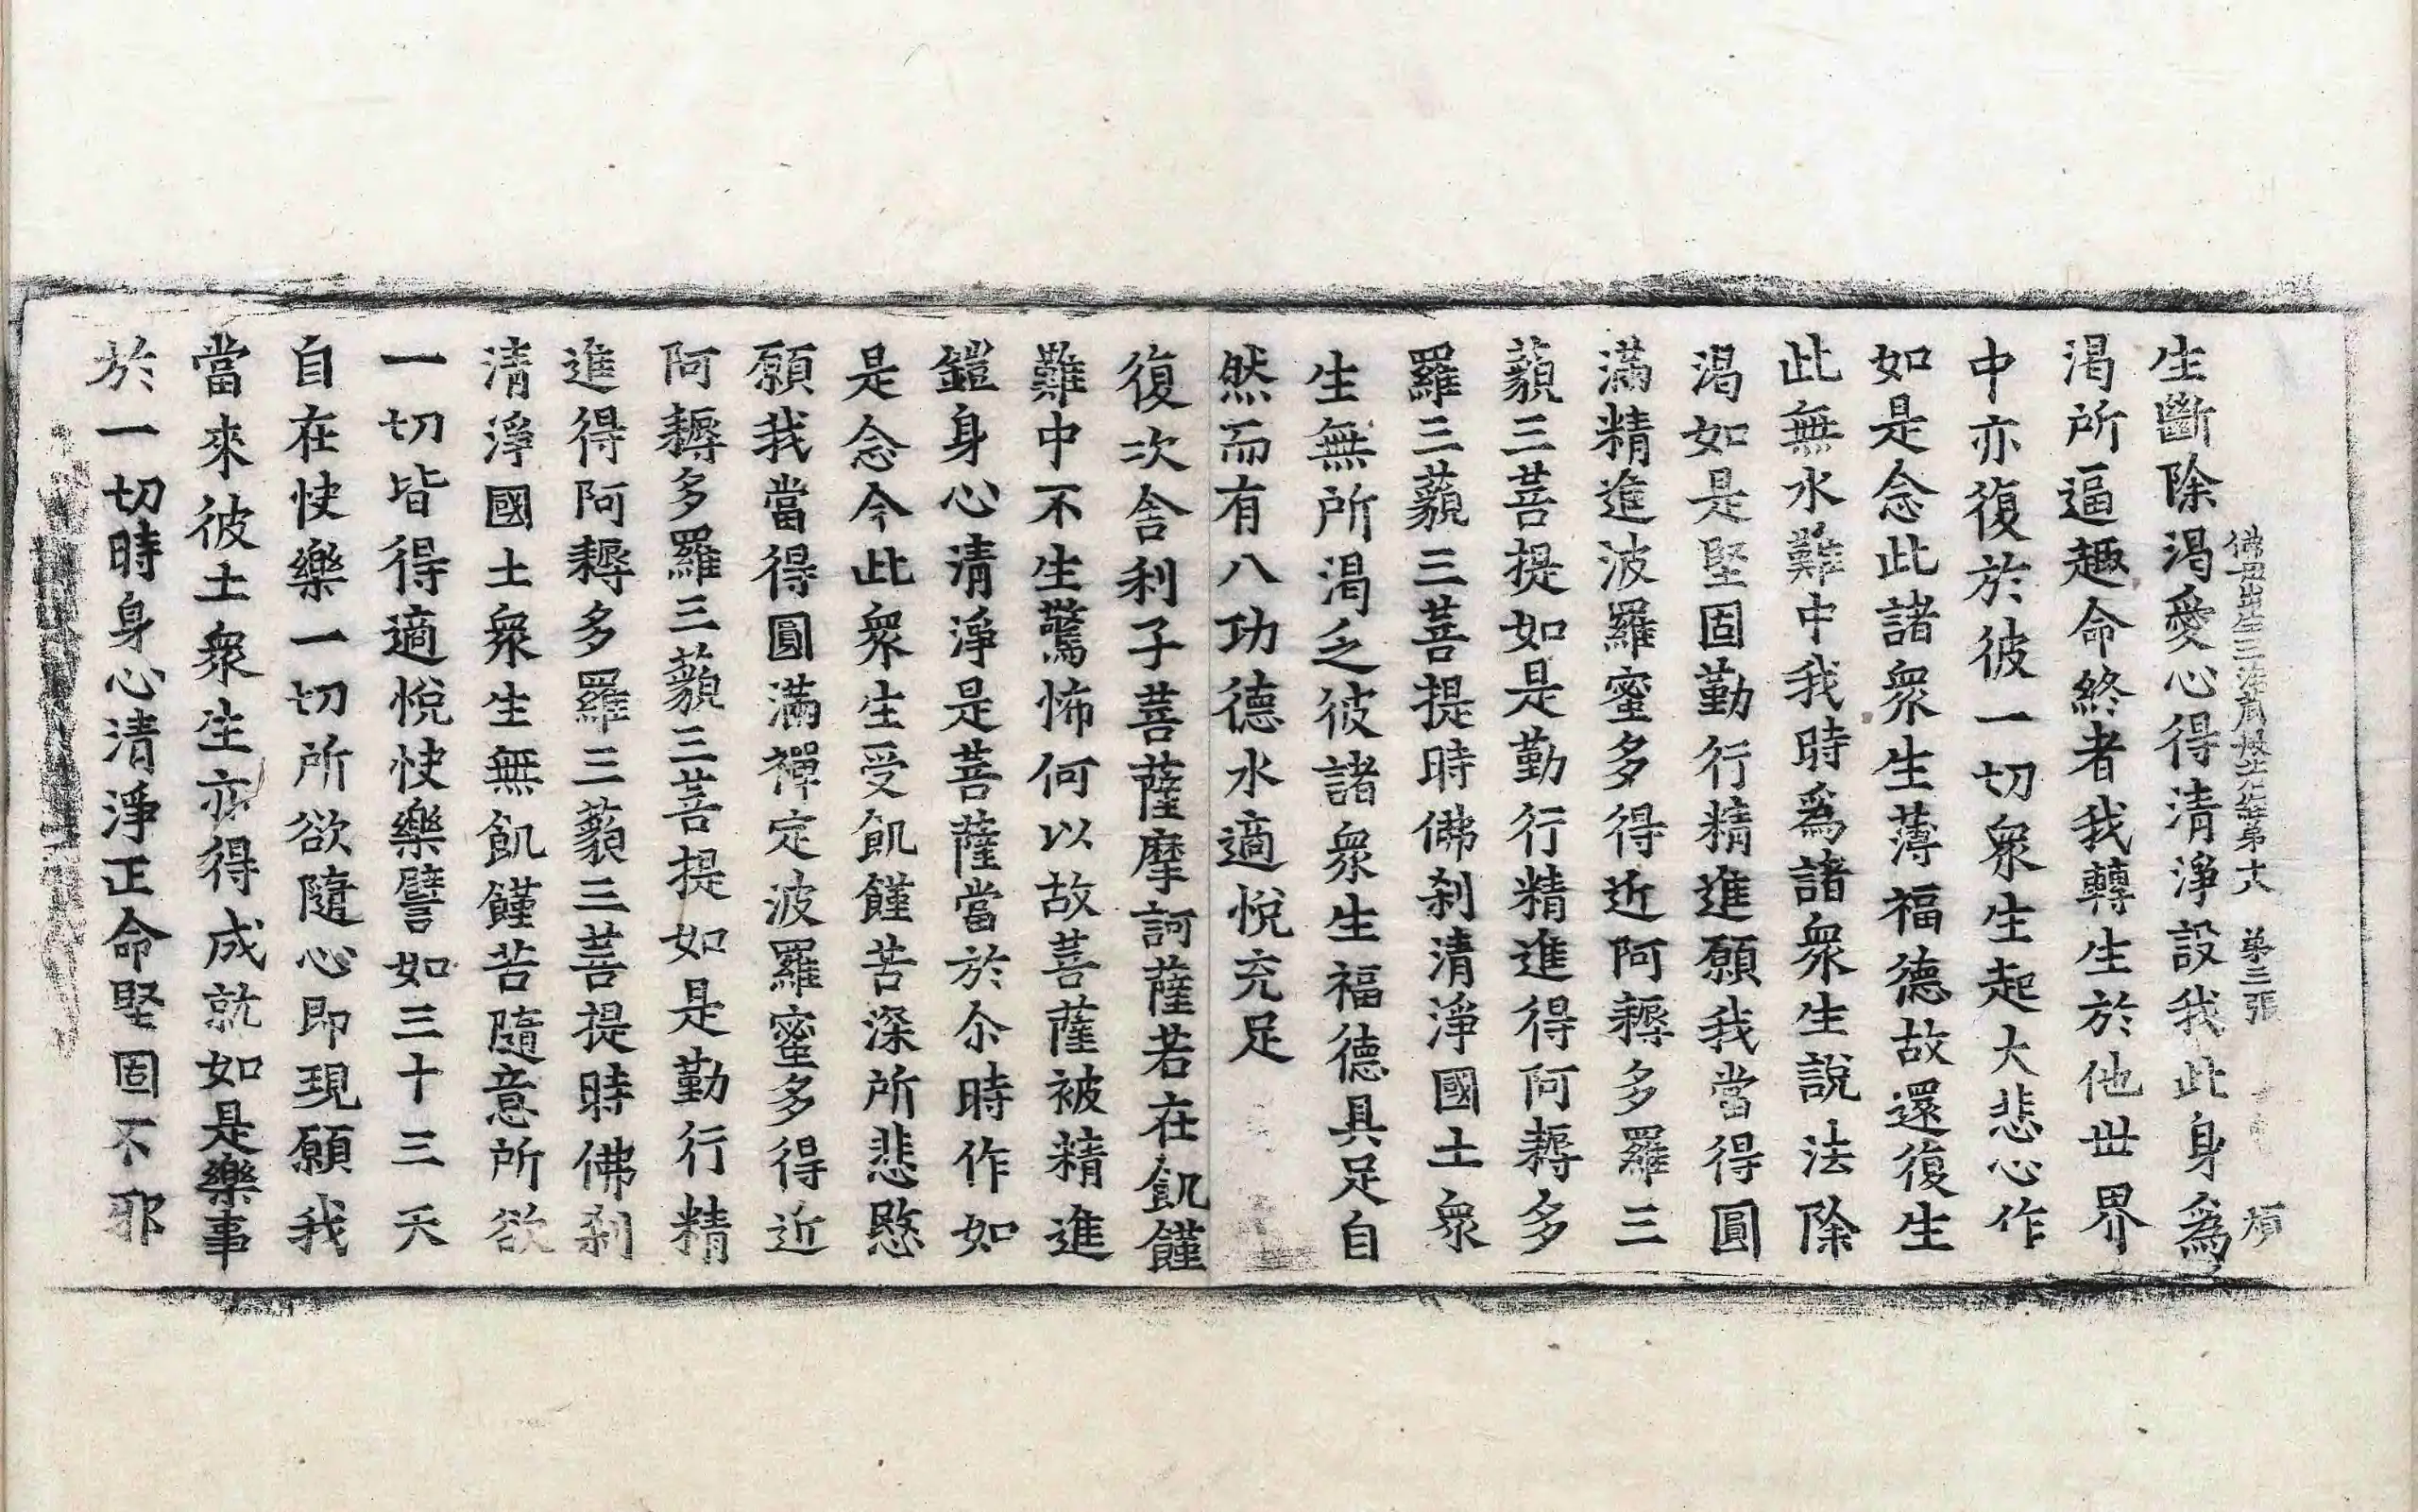 佛母出生三法藏般若經第十八 第三張 煩
生斷除渴愛心得清淨設我此身為
渴所逼趣命終者我轉生於他世界
中亦復於彼一切眾生起大悲心作
如是念此諸眾生薄福德故還復生
此無水難中我時為諸眾生說法除
渴如是堅固勤行精進願我當得圓
滿精進波羅蜜多得近阿耨多羅三
藐三菩提如是勤行精進得阿耨多
羅三藐三菩提時佛剎清淨國土眾
生無所渴乏彼諸眾生福德具足自
然而有八功德水適悅充足
復次舍利子菩薩摩訶薩若在飢饉
難中不生驚怖何以故菩薩被精進
鎧身心清淨是菩薩當於尒時作如
是念今此眾生受飢饉苦深所悲愍
願我當得圓滿禪定波羅蜜多得近
阿耨多羅三藐三菩提如是勤行精
進得阿耨多羅三藐三菩提時佛剎
清淨國土眾生無飢饉苦隨意所欲
一切皆得適悅快樂譬如三十三天
自在快樂一切所欲隨心即現願我
當來彼土眾生亦得成就如是樂事
於一切時身心清淨正命堅固不邪